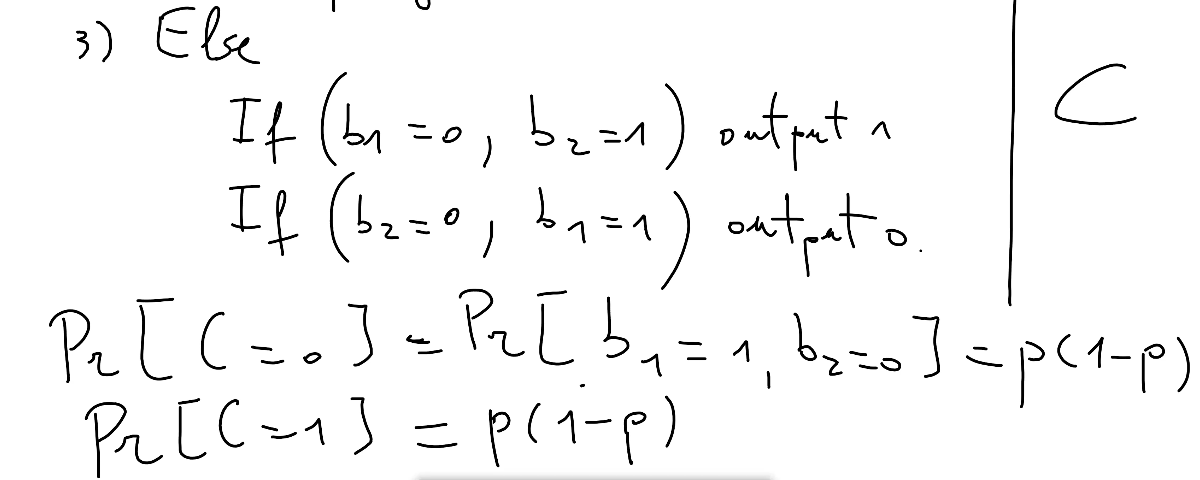 3) Else
If (b1 = 0, b2 = 1) output 1
C
If (b2 = 0, b1 = 1) output 0.
Pr[C = 0] = Pr[b1 = 1, b2 = 0] = p(1-p)
Pr[C = 1] = p(1-p)